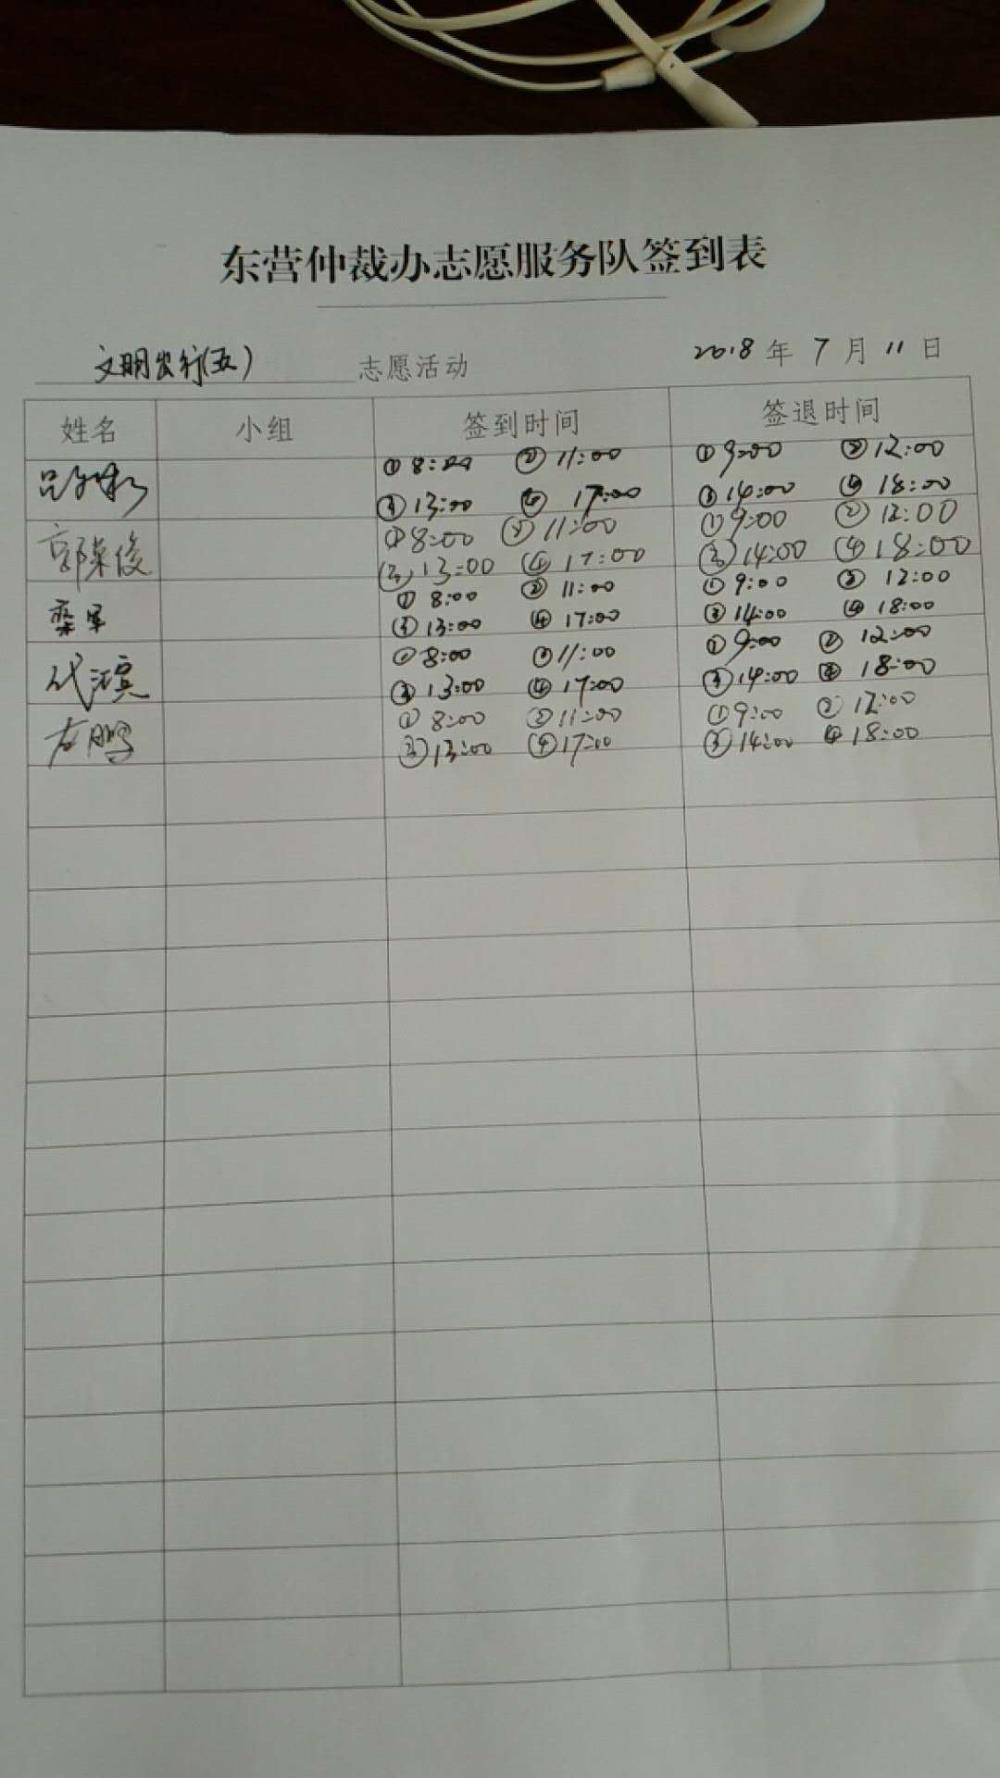 东营仲裁办志愿服务队签到表
文明出行(五) 志愿活动 2018年7月11日
姓名 小组 签到时间 签退时间
①8:00 ②11:00 ①9:00 ②12:00
③13:00 ④17:00 ③14:00 ④18:00
郭荣俊 ①8:00 ②11:00 ①9:00 ②12:00
③13:00 ④17:00 ③14:00 ④18:00
栾军 ①8:00 ②11:00 ①9:00 ②12:00
③13:00 ④17:00 ③14:00 ④18:00
代滨 ①8:00 ②11:00 ①9:00 ②12:00
③13:00 ④17:00 ③14:00 ④18:00
左鹏 ①8:00 ②11:00 ①9:00 ②12:00
③13:00 ④17:00 ③14:00 ④18:00